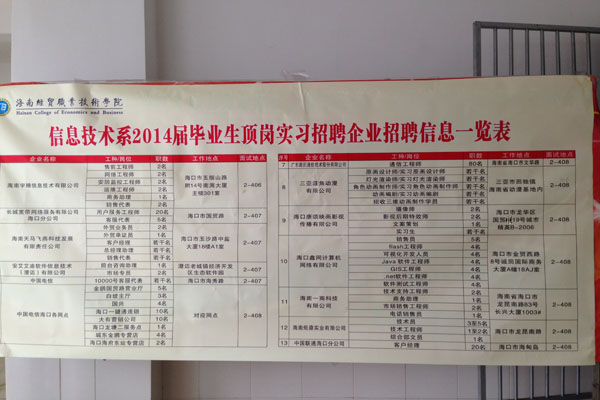 海南经贸职业技术学院
Hainan College of Economics and Business
信息技术系2014届毕业生顶岗实习招聘企业招聘信息一览表
企业名称 工种/岗位 职数 工作地点 面试地点
售前工程师 2名
网络工程师 2名
安防监控工程师 2名
运维工程师 2名
商务助理 1名
销售代表 2名
海南宇横信息技术有限公司
海口市五指山路
附14号南海大厦
主楼301室
2-406
长城宽带网络服务有限公司
海口分公司
用户服务工程师 20名
客服代表 5名
海口市国贸路 2-407
外贸业务员 2名
外贸单证员 1名
客户经理 若干名
总经理助理 若干名
销售代表 若干名
海南天马飞燕科技发展
有限责任公司
海口市龙沙路中盐
大厦16楼A1室
2-407
前台咨询助理 1名
市场专员 2名
澄迈老城镇经济开发
区生态软件园
2-407
中国电信 10000号客服代表 若干名 海口市海秀路 2-407
金鹏国贸路营业厅 5名
白坡主厅 3名
国兴 4名
海口一键通连锁 10名
大有营销公司 10名
海口龙塘二服务点 1名
城东金鹏专营店 4名
海口海府东站专营店 2名
中国电信海口各网点 对应网点 2-407
序号 企业名称 工种/岗位 职数 工作地点 面试地点
7 通信工程师 80名 海南省海口市文华路 2-408
8
原画设计师/实习原画设计师 若干名
灯光渲染师/实习灯光渲染师 若干名
角色动画制作师/实习角色动画制作师 若干名
动画编剧/实习动画编剧 若干名
招收三维动画制作学员 若干名
三亚漠角动漫
有限公司
三亚市田独镇
海南省动漫基地内
2-408
9
摄像师 2名
影视后期特效师 2名
文案策划 1名
实习生 若干名
海口市龙华区
2-408
10
销售员 5名
flash工程师 4名
可视化开发人员 4名
Java 软件工程师 4名
GIS工程师 4名
net软件工程师 4名
软件测试工程师 4名
技术支持工程师 2名
海口鑫网计算机
网络有限公司
海口市金贸西路
大厦A幢18AJ室
2-408
11
商务助理 1名
市场销售工程师 2名
电话销售员 1名
海南一鸿科技
有限公司
海南省海口市
龙昆南路83号
长兴大厦1003#
2-408
12
技术员 3至5名
技术工程师 1至2名
综合部文员 1名
海口市龙昆南路 2-408
13 中国联通海口分公司 客户经理 20名 海口市海甸岛 2-408